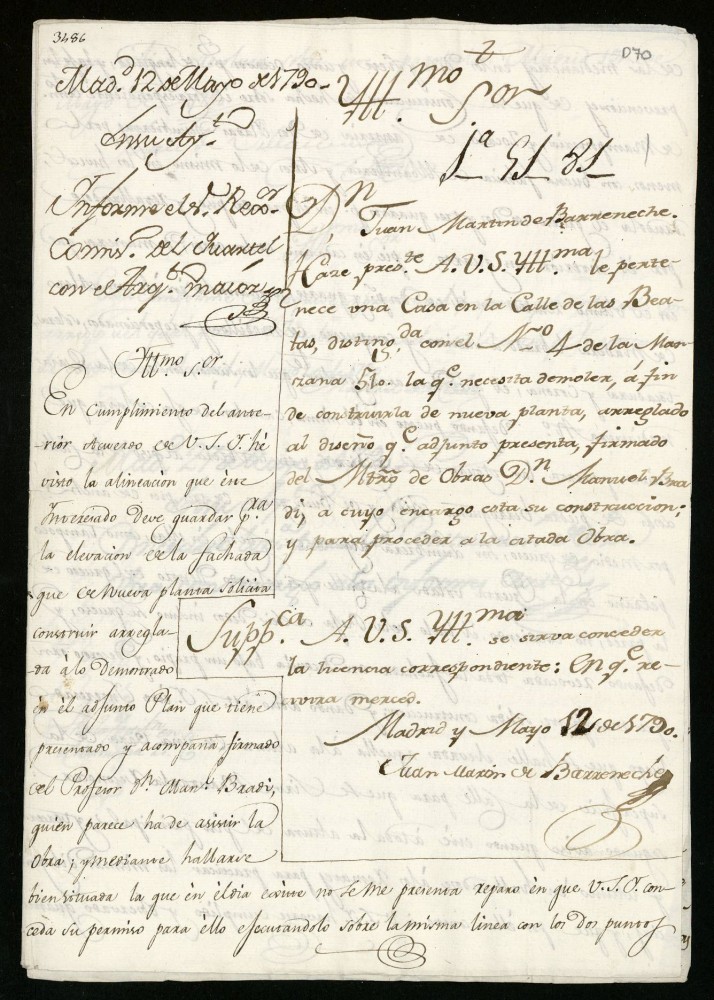 3486
D70
Mad.d 12 de Mayo de 1790.
En su Ay.to
Informe el S.r Rex.or
Comis.o del Quartel
con el Arq.to maior
Yll.mo S.or
1a 51 81
D.n Juan Martin de Barreneche.
Haze pres.te A.V.S. Yll.ma le perte-
nece una Casa en la Calle de las Bea-
tas, disting.da con el N.ro 4 de la Man-
zana 510. la q.e necesita demoler, á fin
de construirla de nueva planta, arreglado
al diseño q.e adjunto presenta, firmado
del Mtro de Obras D.n Manuel Bra
di, a cuyo encargo esta su construccion;
y para proceder a la citada Obra.
Supp.ca A. V. S. Yll.ma se sirva conceder
la licencia correspondiente: En q.e re-
civira merced.
Madrid y Mayo 12 de 1790.
Juan Martin de Barreneche
Ill.mo S.or
En cumplimiento del ante-
rior Acuerdo de V.S.I. hé
visto la alineacion que éste
Interesado deve guardar p.ra
la elevacion de la fachada
que de Nueva planta solicita
construir arregla-
da á lo Demostrado
én él adjunto Plan que tiene
presentado y acompaña firmado
del Profesor D.n Man.l Bradi,
quien parece ha de asistir la
Obra; y mediante hallarse
bien situada la que én él dia existe no se me presenta reparo én que V.S.I. con-
ceda su permiso para éllo ejecutandolo sobre la misma linea con los Dos puntos